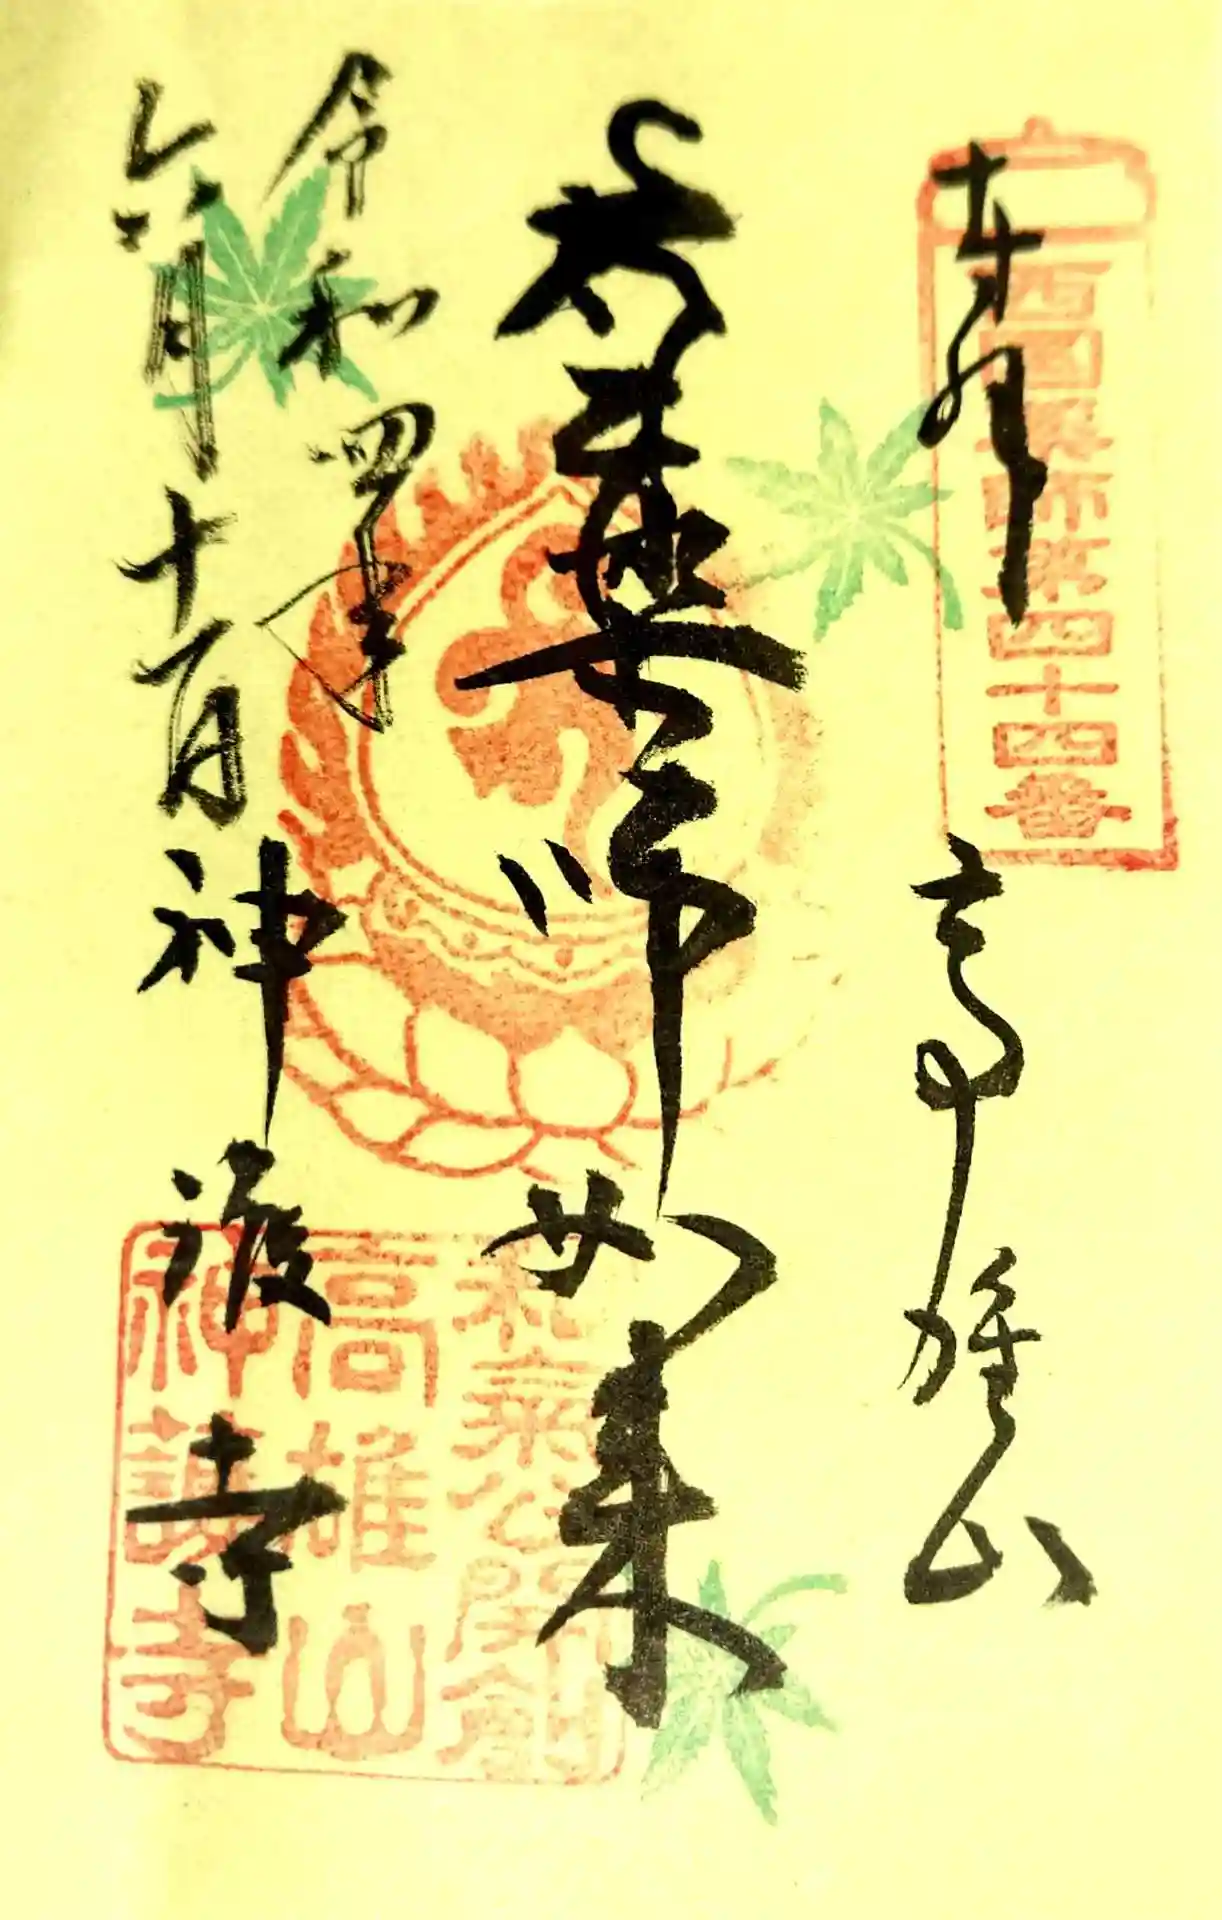 奉拝
西国薬師第四十四番
高雄山
薬師如来
令和四年
六月十一日
神護寺
和氣公開創
高雄山
神護寺